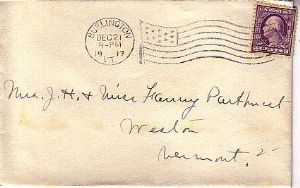 BURLINGTON
DEC 21
6-PM
1917
VT.
Mrs. J. H. & Miss Fanny Parkhurst
Weston
Vermont.